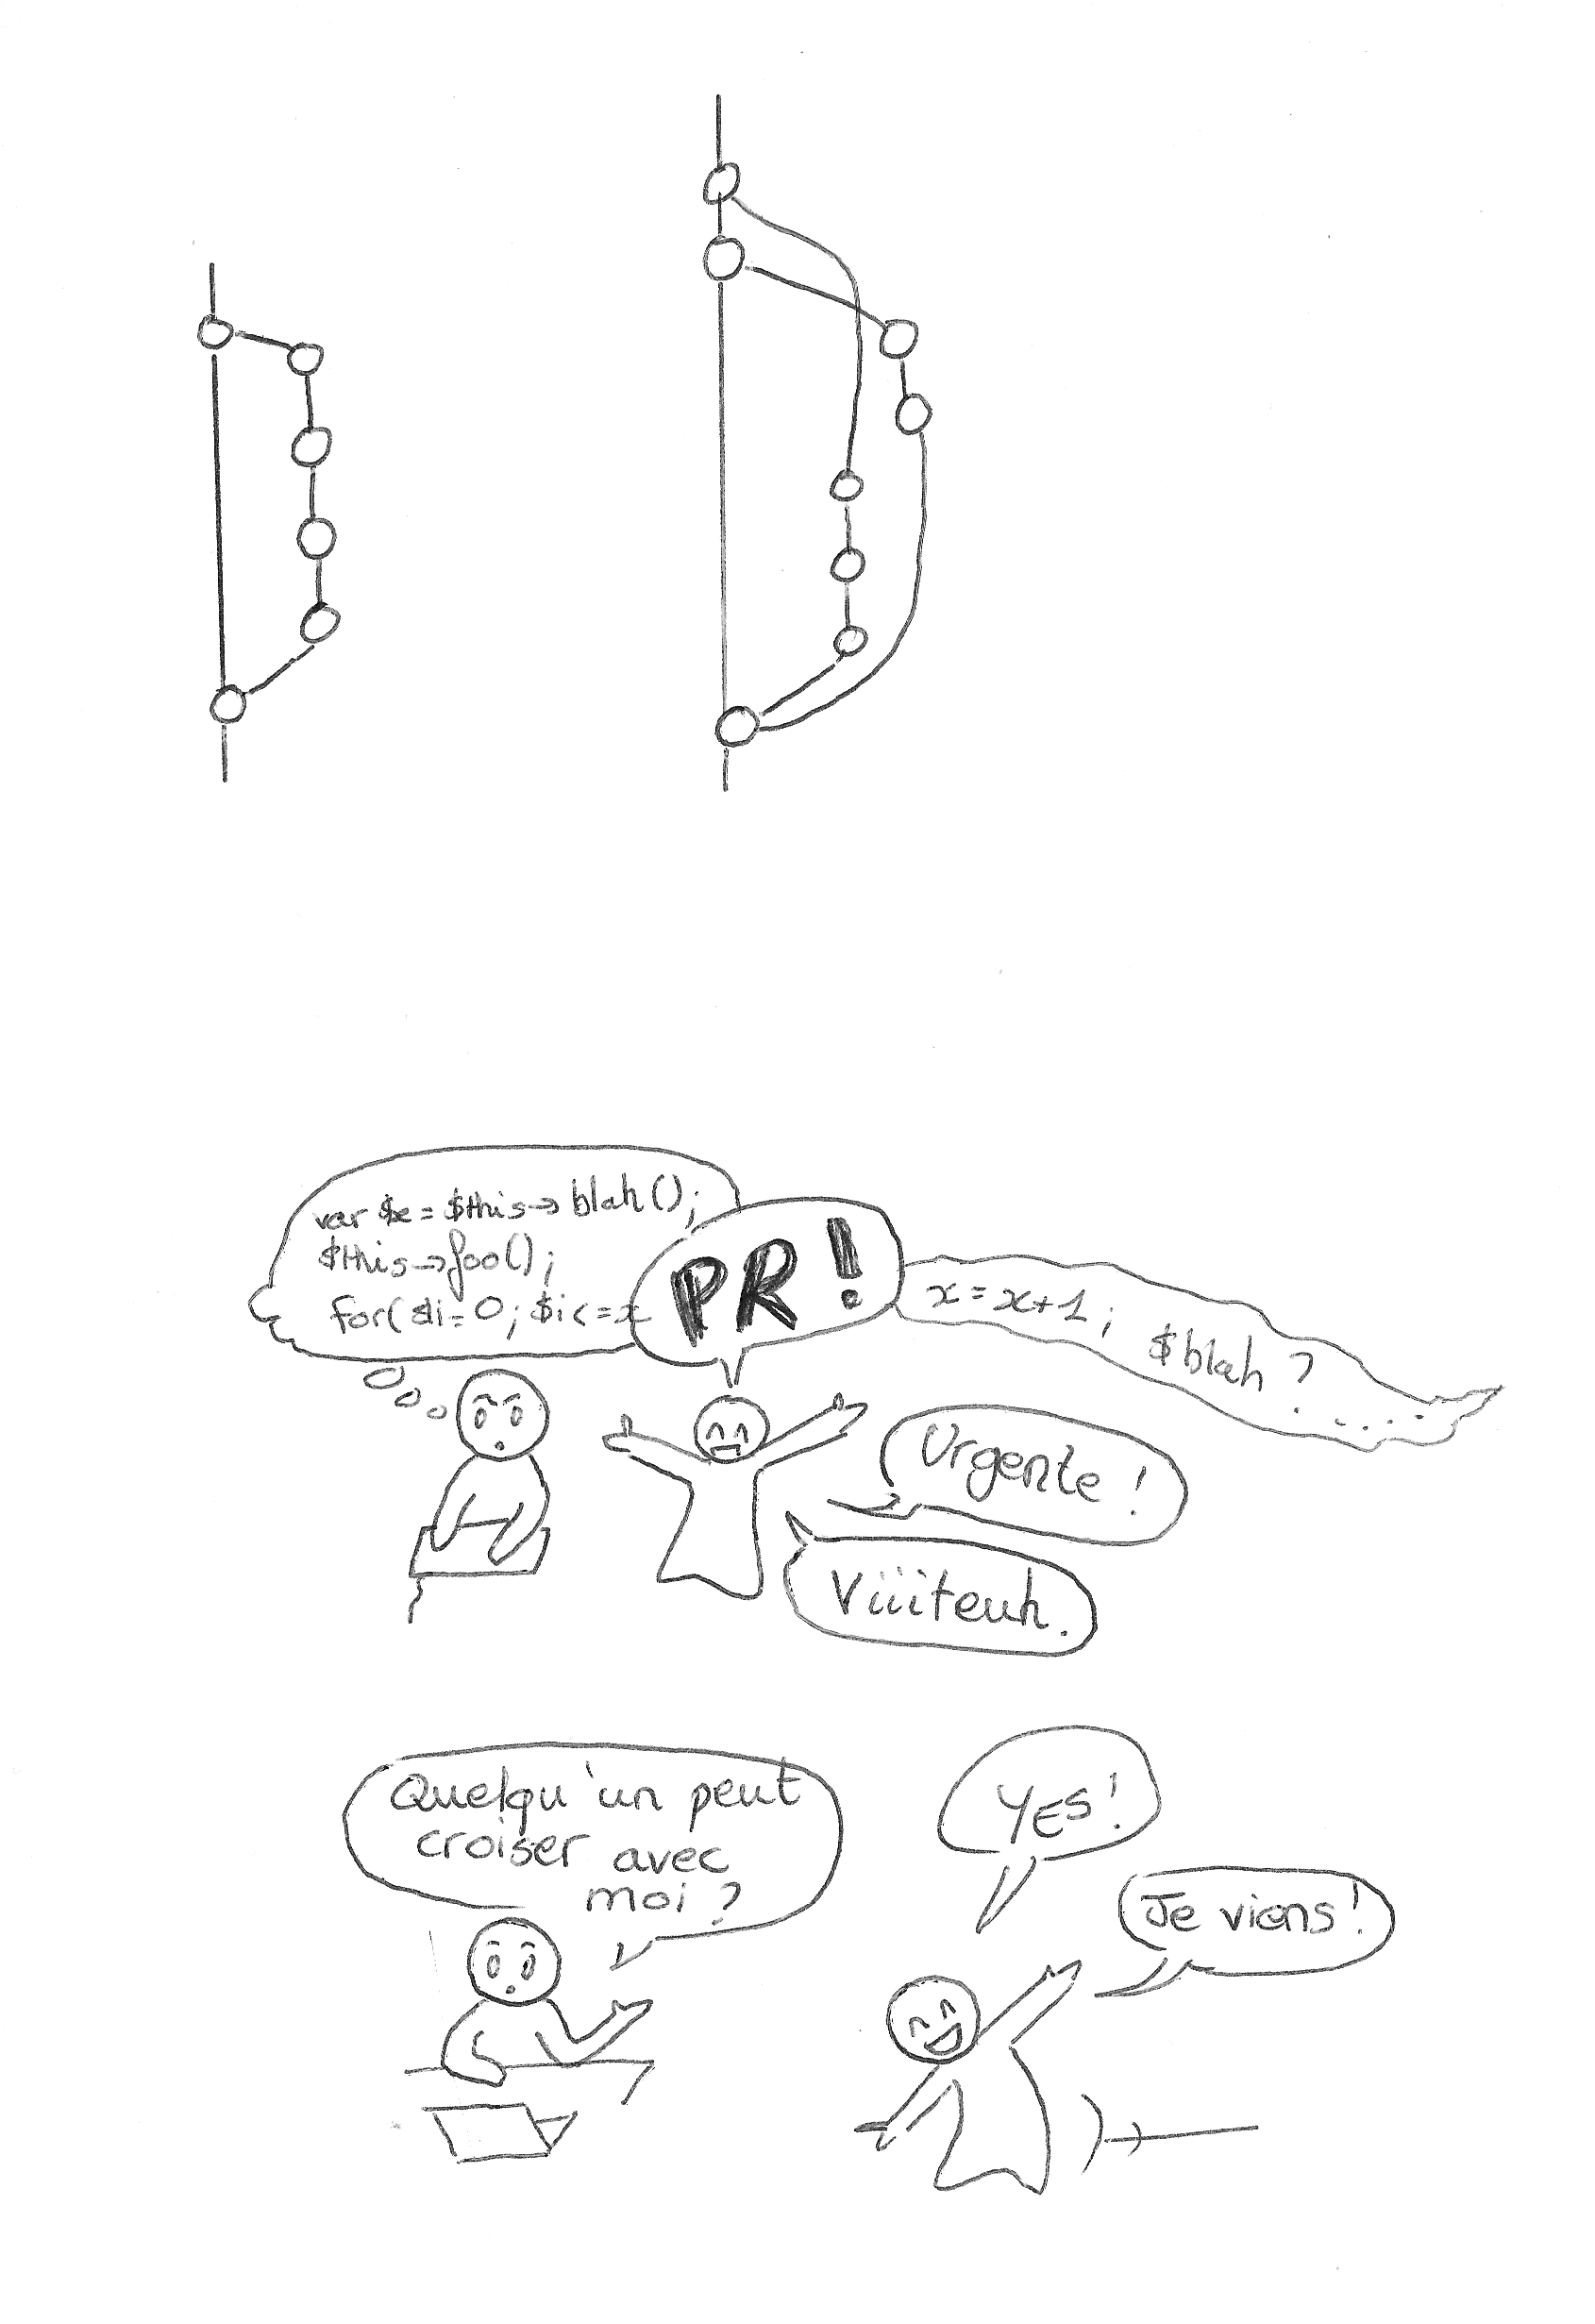 var $x = $this→blah();
$this→foo();
for($i=0; $i<=x
PR!
x = x+1;
$blah ?
.....
Urgente !
Viiiteuh.
Quelqu'un peut
croiser avec
moi ?
YES!
Je viens !